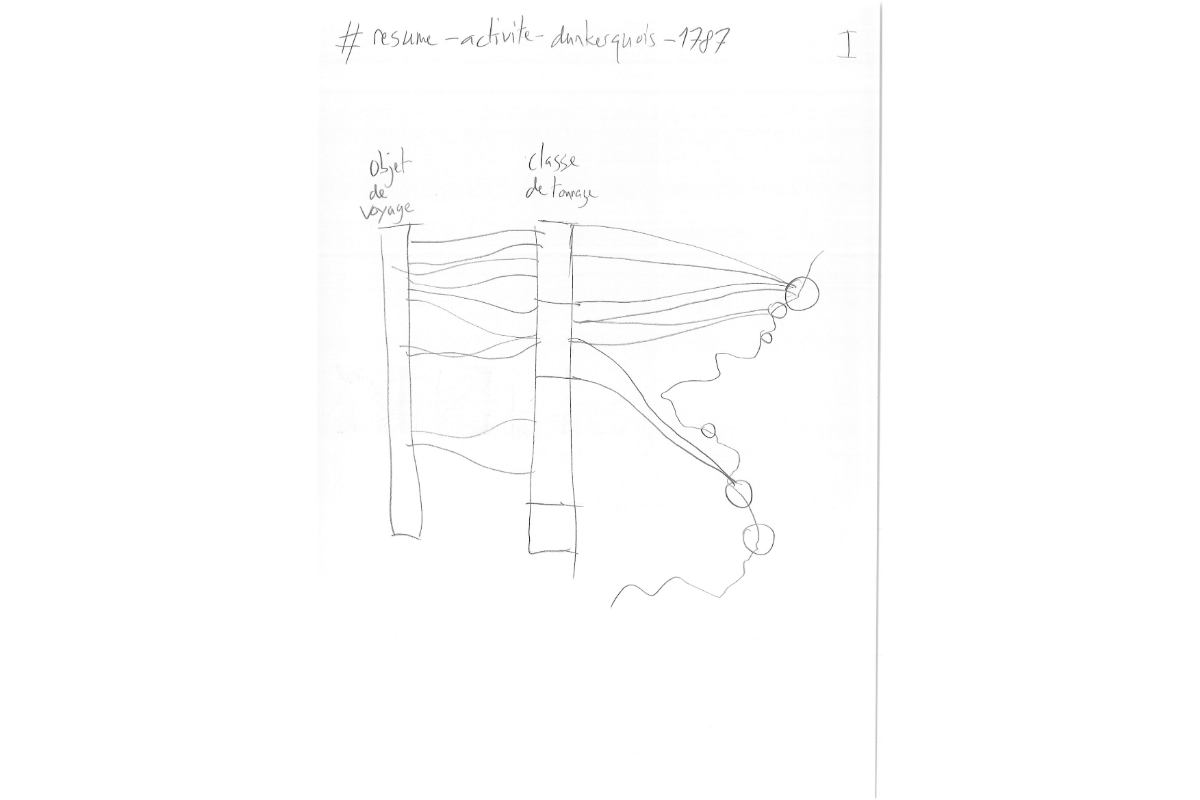 # resume-activite-dunkerquois-1787
I
objet
de
voyage
classe
de tonnage